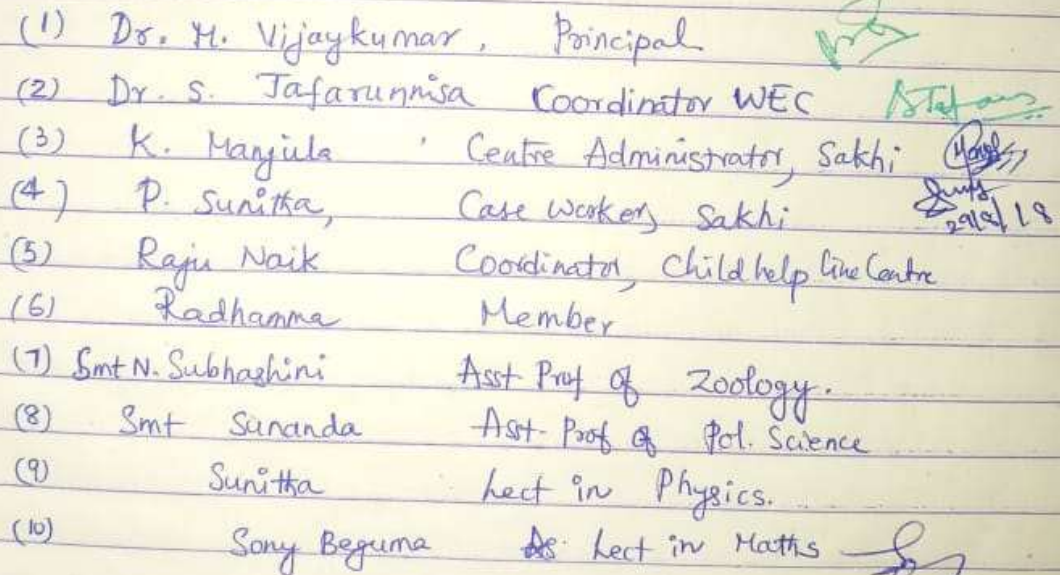 (1) Dr. H. Vijaykumar, Principal
(2) Dr. S. Jafarunnisa Coordinator WEC
(3) K. Manjula Centre Administrator, Sakhi
(4) P. Sunitha, Case Worker, Sakhi
29/8/18
(5) Raju Naik Coordinator, Child help line Centre
(6) Radhamma Member
(7) Smt N. Subhashini Asst Prof of Zoology.
(8) Smt Sunanda Asst. Prof of Pol. Science
(9) Sunitha Lect in Physics.
(10) Sony Beguma Lect in Maths